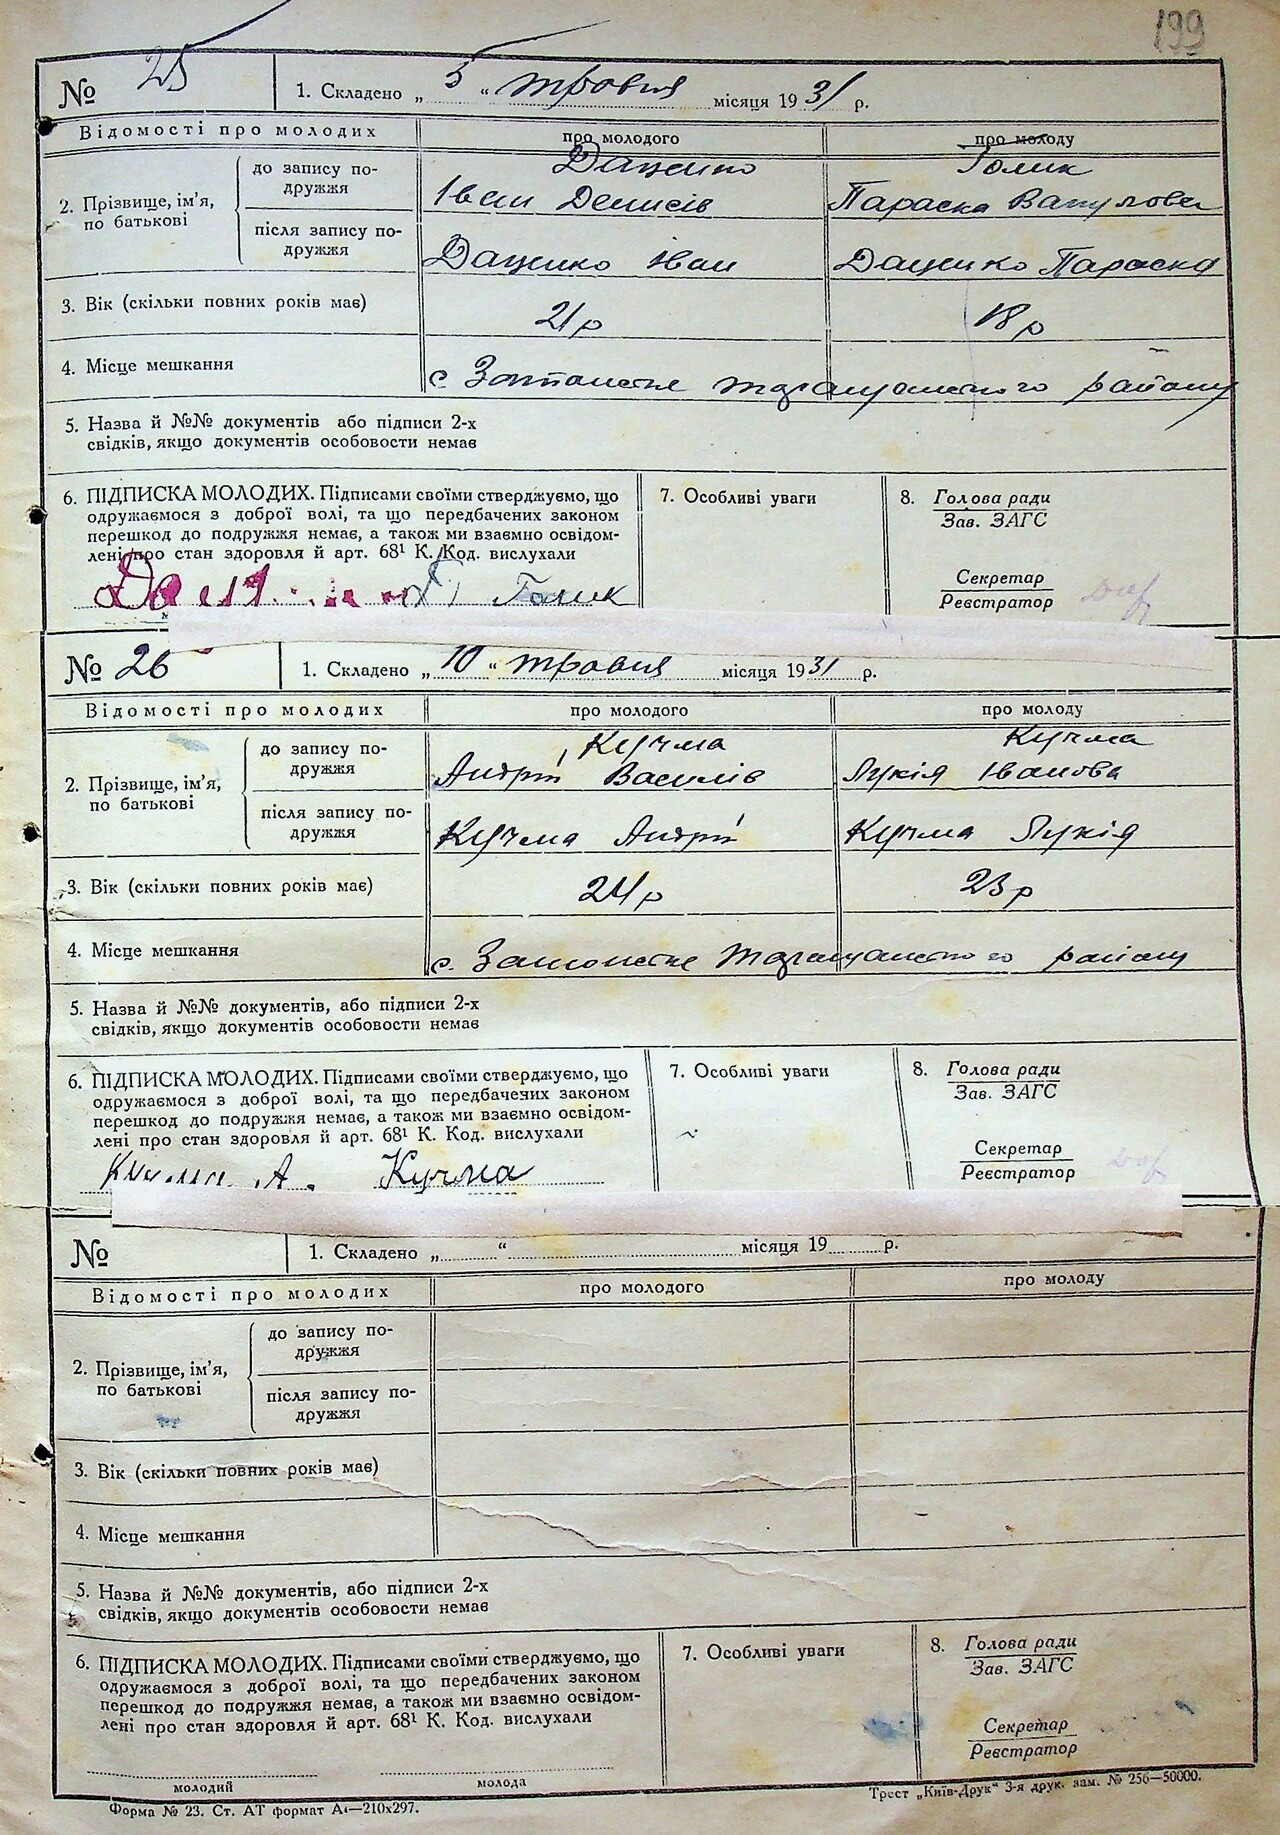 199
№ 25 1. Складено „ 5 “ травня місяця 1931 р.
Відомості про молодих про молодого про молоду
2. Прізвище, ім’я, по батькові
до запису подружжя
Даценко
Іван Денисів
Голик
Параска Вакулова
після запису подружжя
Даценко Іван Даценко Параска
3. Вік (скільки повних років має) 21 р 18 р
4. Місце мешкання с. районну
5. Назва й №№ документів або підписи 2-х
свідків, якщо документів особовости немає
6. ПІДПИСКА МОЛОДИХ. Підписами своїми стверджуємо, що
одружаємося з доброї волі, та що передбачених законом
перешкод до подружжя немає, а також ми взаємно освідом-
лені про стан здоровля й арт. 68¹ К. Код. вислухали
Голик
7. Особливі уваги
8. Голова ради
Зав. ЗАГС
Секретар
Реєстратор
№ 26 1. Складено „ 10 “ травня місяця 1931 р.
Відомості про молодих про молодого про молоду
2. Прізвище, ім’я,
по батькові
до запису по-
дружжя
Кучма
Андрій Василів
Кучма
Лукія Іванова
після запису по-
дружжя
Кучма Андрій Кучма Лукія
3. Вік (скільки повних років має) 24 р 23 р
4. Місце мешкання с. району
5. Назва й №№ документів, або підписи 2-х
свідків, якщо документів особовости немає
6. ПІДПИСКА МОЛОДИХ. Підписами своїми стверджуємо, що
одружаємося з доброї волі, та що передбачених законом
перешкод до подружжя немає, а також ми взаємно освідом-
лені про стан здоровля й арт. 68¹ К. Код. вислухали
Кучма А. Кучма
7. Особливі уваги
8. Голова ради
Зав. ЗАГС
Секретар
Реєстратор
№ 1. Складено „ “ місяця 19 р.
Відомості про молодих про молодого про молоду
2. Прізвище, ім’я,
по батькові
до запису по-
дружжя
після запису по-
дружжя
3. Вік (скільки повних років має)
4. Місце мешкання
5. Назва й №№ документів, або підписи 2-х
свідків, якщо документів особовости немає
6. ПІДПИСКА МОЛОДИХ. Підписами своїми стверджуємо, що
одружаємося з доброї волі, та що передбачених законом
перешкод до подружжя немає, а також ми взаємно освідом-
лені про стан здоровля й арт. 68¹ К. Код. вислухали
молодий молода
7. Особливі уваги
8. Голова ради
Зав. ЗАГС
Секретар
Реєстратор
Форма № 23. Ст. АТ формат А₄—210х297.
Трест „Київ-Друк“ 3-я друк. зам. № 256—50000.